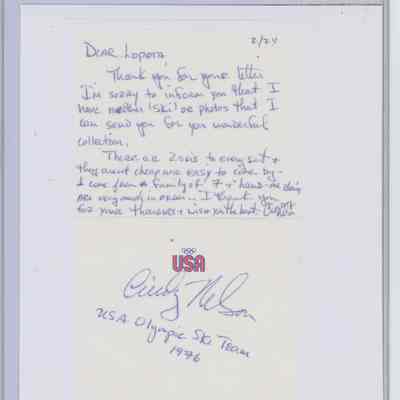 2/24
Dear
Thank you for your letter
I'm sorry to inform you that I
have neither 'Ski' or photos that I
can send you for your wonderful
collection.
There are 2 skis to every set +
they arent cheap are easy to come by-
I come from a family of 7 +
are very much in order. I thank you
for your + wish you the best
USA
Cindy Nelson
USA Olympic Ski Team
1976